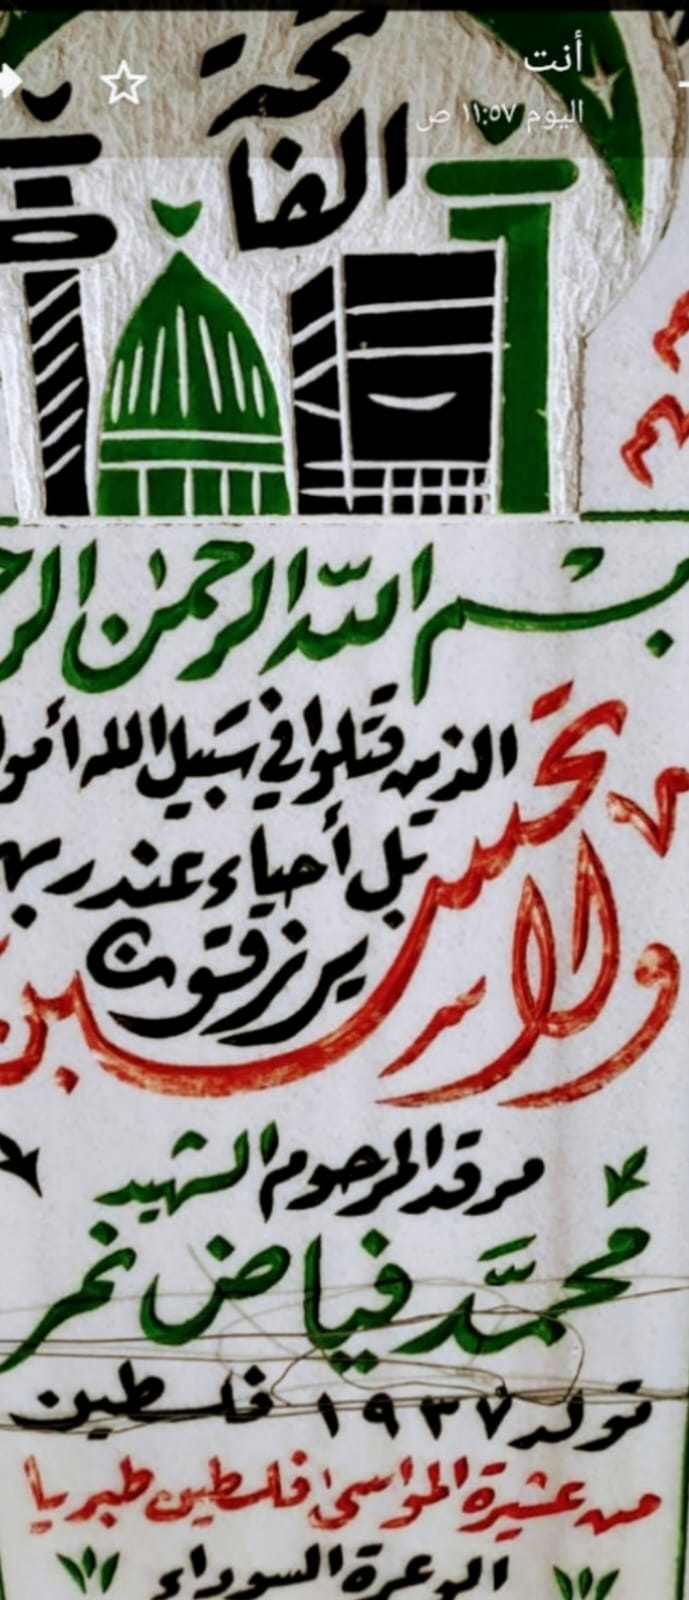 أنت
اليوم ١١:٥٧ ص
الفاتحة
بسم الله الرحمن الر
ولا تحسبن
الذين قتلوا في سبيل الله أموا
بل أحياء عند ربه
يرزقون
مرقد المرحوم الشهيد
محمَّد فياض نمر
تولد ١٩٣٧ فلسطين
من عشيرة المواسى فلسطين طبريا
الوعرة السوداء